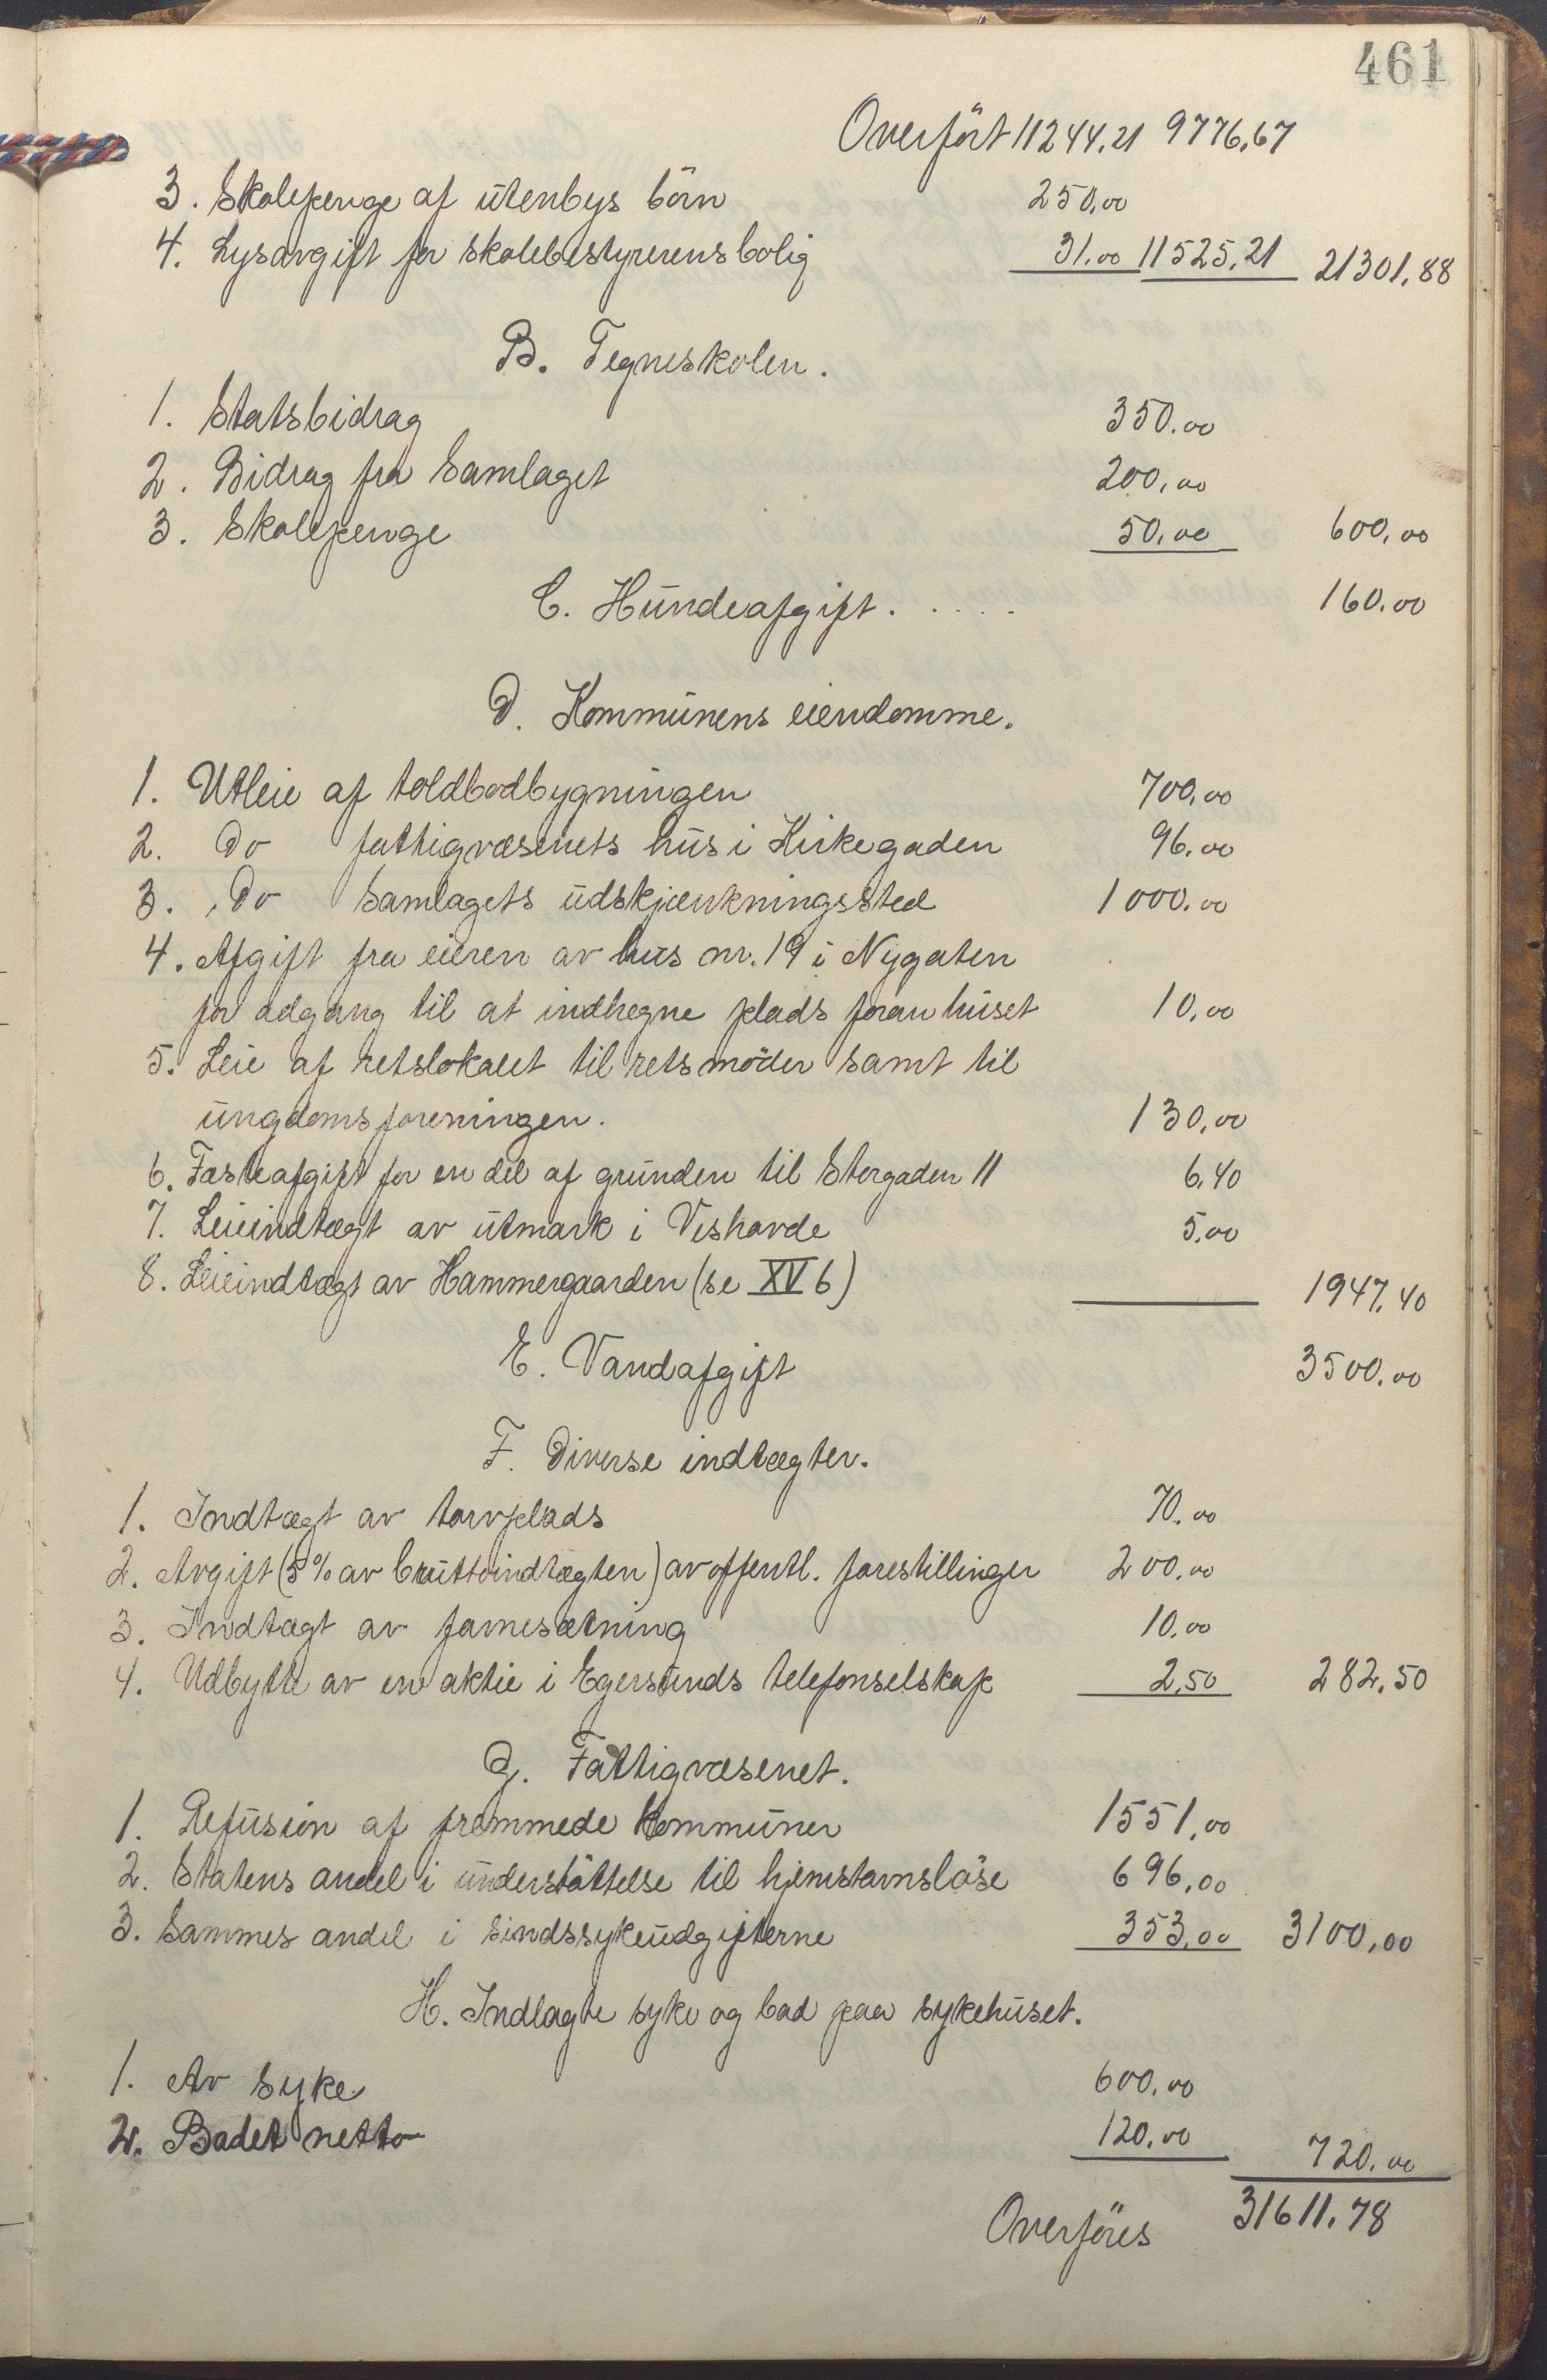 461
Overført 11244.21 9776,67
3. Skolepenge af utenbys börn 250,00
4. Lysavgift for skolebestyrerens bolig 31.00 11525,21 21301,88
B. Tegneskolen.
1. Statsbidrag 350.00
2. Bidrag fra Samlaget 200,00
3. Skolepenge 50,00 600,00
C. Hundeafgift. . . . . 160.00
D. Kommunens eiendomme.
1. Utleie af toldbodbygningen 700,00
2. Do fattigvæsenets hus i Kirkegaden 96.00
3. Do Samlagets udskjænkningssted 1000.00
4. Afgift fra eieren av hus nr. 19 i Nygaten
for adgang til at indhegne plads foran huset 10,00
5. Leie af retslokalet til retsmöder samt til
ungdomsforeningen. 130,00
6. Fæsteafgift for en del af grunden til Storgaden 11 6,40
7. Leieindtægt av utmark i Veshovde 5.00
8. Leieindtægt av Hammergaarden (se XV 6) 1947.40
E. Vandafgift 3500.00
F. Diverse indtægter.
1. Indtægt av torvplads 70.00
2. Avgift (5% av bruttoindtægten) av offentl. forestillinger 200.00
3. Indtægt av favnesætning 10.00
4. Udbytte av en aktie i Egersunds telefonselskap 2,50 282.50
G. Fattigvæsenet.
1. Refusion af fremmede kommuner 1551,00
2. Statens andel i understöttelse til hjemstavnslöse 696,00
3. Sammes andel i sindssykeudgifterne 353,00 3100,00
H. Indlagte syke og bad paa sykehuset.
1. Av syke 600.00
2. Badet netto 120.00 720.00
Overföres 31611.78